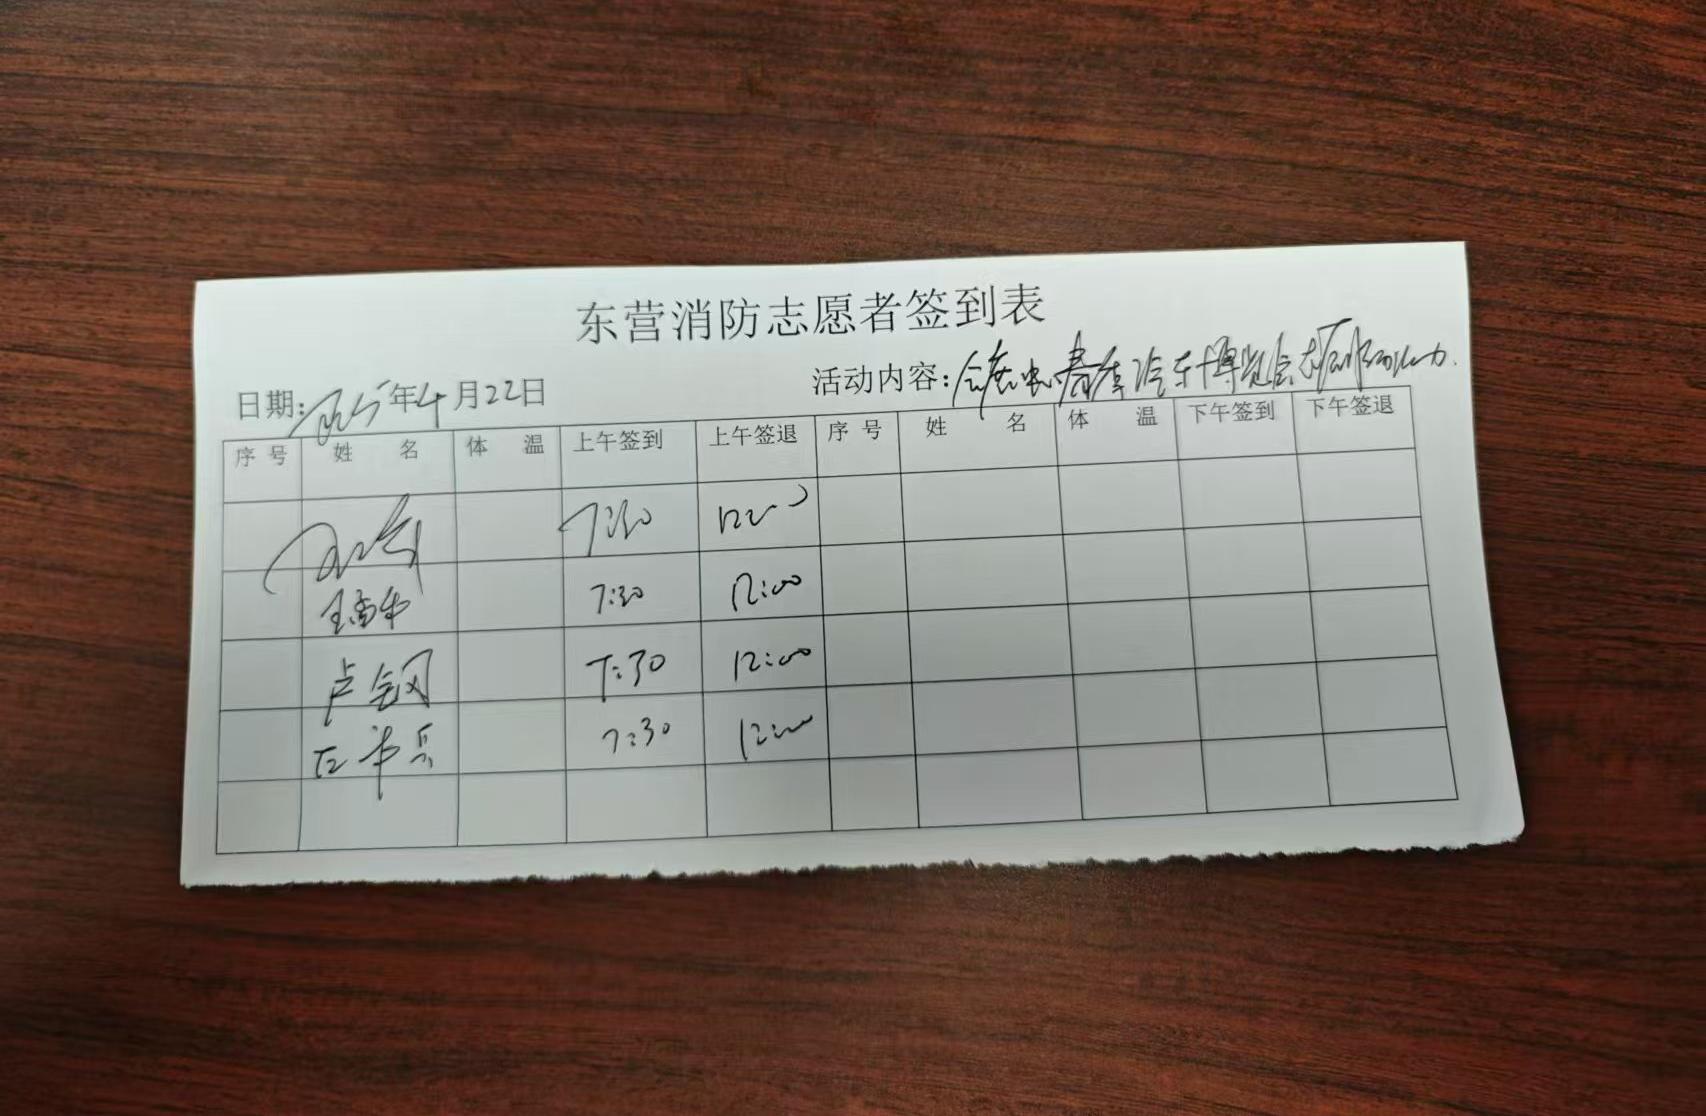 东营消防志愿者签到表
日期: 年4月22日 活动内容: 春季汽车博览会志愿服务活动.
序号 姓名 体温 上午签到 上午签退 序号 姓名 体温 下午签到 下午签退
7:30 12:00
7:30 12:00
卢钢 7:30 12:00
左兵 7:30 12:00